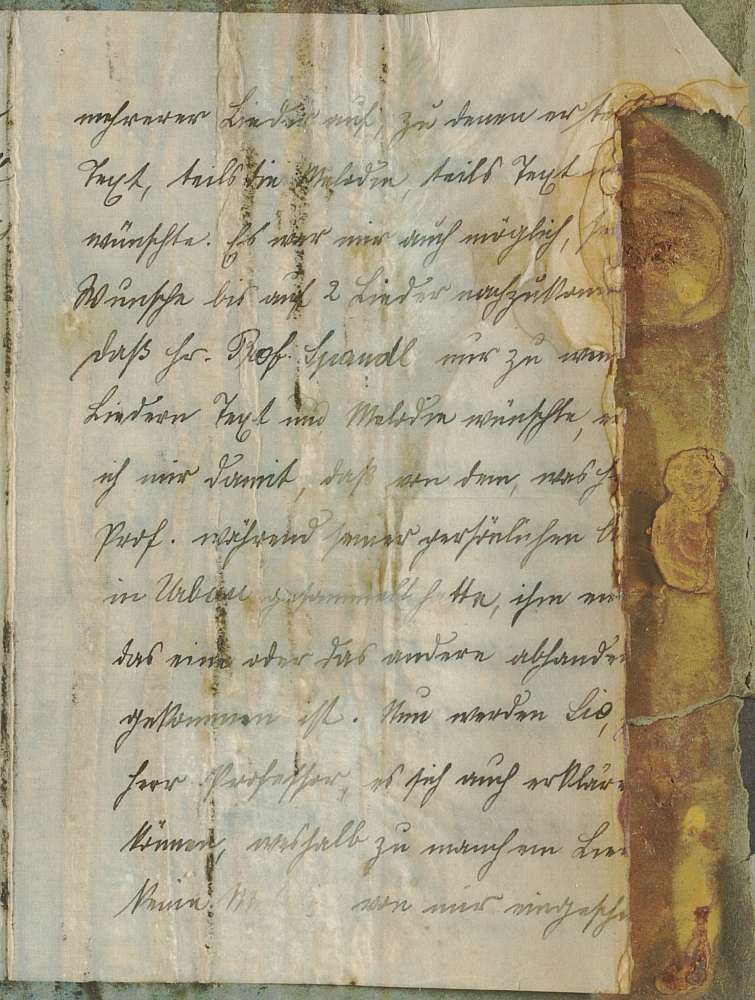 mehrerer Lieder auf, zu denen er teils
Text, teils die Melodie, teils Text
wünschte. Es war mir auch möglich,
Wunsche bis auf 2 Lieder nachzukom
daß Hr. Prof. Spandl nur zu
Liedern Text und Melodie wünschte,
ich mir damit, daß von dem, was H
Prof. während seiner persönlichen
in Urbau gesammelt hatte, ihm
das eine oder das andere abhanden
gekommen ist. Nun werden Sie,
Herr Professor, es sich auch erkläre
können, weshalb zu manchem Lie
keine von mir eingesch